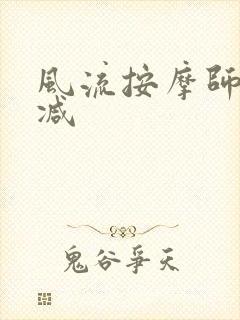 風流按摩師
减
鬼谷爭天